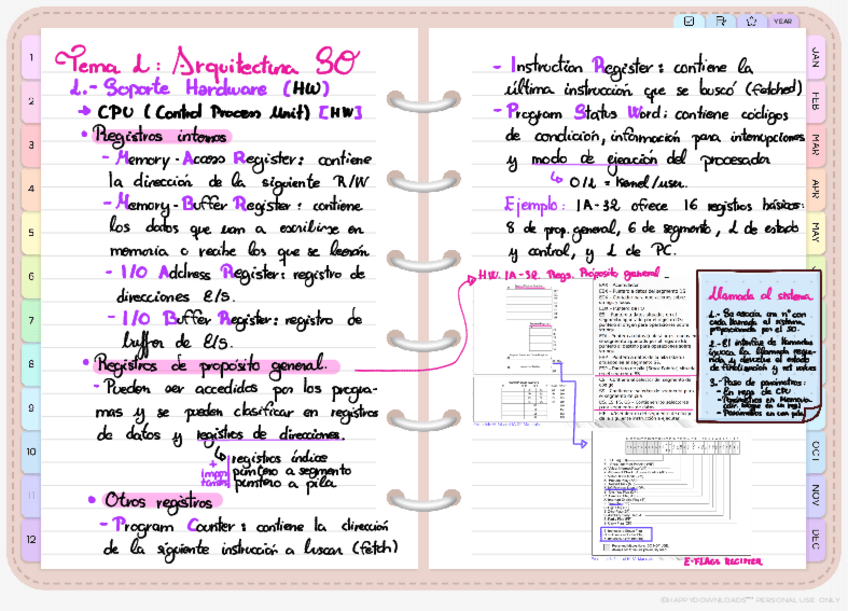 YEAR
1
2
3
4
5
6
7
8
9
10
11
12
JAN
FEB
MAR
APR
MAY
OCT
NOV
DEC
Tema 1: Arquitectura SO
1.- Soporte Hardware (HW)
→ CPU (Control Process Unit) [HW]
• Registros internos
- Memory - Access Register: contiene
la dirección de la siguiente R/W
- Memory - Buffer Register: contiene
los datos que van a escribirse en
memoria o recibe los que se leerán
- I/O Address Register: registro de
direcciones E/S.
- I/O Buffer Register: registro de
buffer de E/S.
• Registros de propósito general.
- Pueden ser accedidos por los progra-
mas y se pueden clasificar en registros
de datos y registros de direcciones.
registros índices
+ impor tantes
puntero a segmento
puntero a pila
• Otros registros
- Program Counter: contiene la dirección
de la siguiente instrucción a buscar (fetch)
- Instruction Register: contiene la
última instrucción que se buscó (fetched)
- Program Status Word: contiene códigos
de condición, información para interrupciones
y modo de ejecución del procesador
0/1 = Kernel/user.
Ejemplo: IA-32 ofrece 16 registros básicos:
8 de prop. general, 6 de segmento, 1 de estado
y control, y 1 de PC.
HW. IA-32. Regs. Propósito general
Llamada al sistema
1.- Se asocia un nº con
cada llamada al sistema,
proporcionada por el SO.
2.- El interfaz de llamadas
invoca la llamada reque-
rida y devuelve el estado
de finalización y ret values
3.- Paso de parámetros:
- En regs de CPU
- Parámetros en Memoria
- Parámetros en una pila
E-FLAGS REGISTER
©HAPPYDOWNLOADS™ PERSONAL USE ONLY